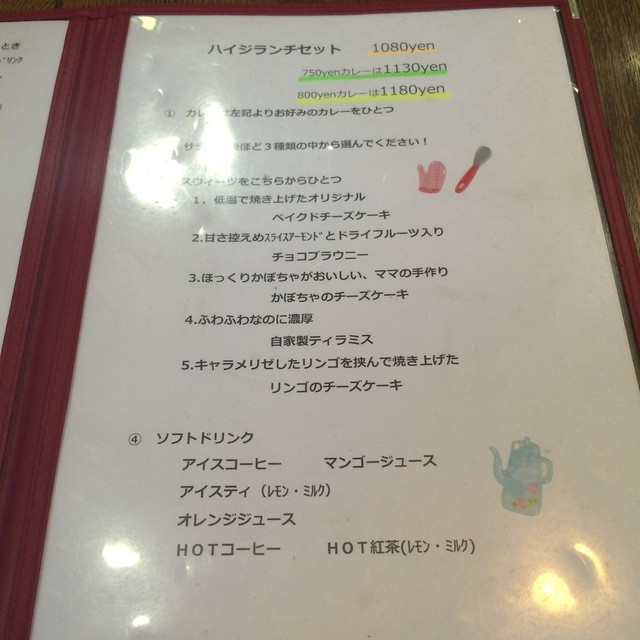 とき
ドリンク
ハイジランチセット 1080yen
750yenカレーは1130yen
800yenカレーは1180yen
① カレーは左記よりお好みのカレーをひとつ
ほど３種類の中から選んでください！
スウィーツをこちらからひとつ
１．低温で焼き上げたオリジナル
ベイクドチーズケーキ
2.甘さ控えめｽﾗｲｽアーモンドﾞとドライフルーツ入り
チョコブラウニー
3.ほっくりかぼちゃがおいしい、ママの手作り
かぼちゃのチーズケーキ
4.ふわふわなのに濃厚
自家製ティラミス
5.キャラメリゼしたリンゴを挟んで焼き上げた
リンゴのチーズケーキ
④ ソフトドリンク
アイスコーヒー マンゴージュース
アイスティ（ﾚﾓﾝ・ﾐﾙｸ）
オレンジジュース
ＨＯＴコーヒー ＨＯＴ紅茶(ﾚﾓﾝ・ﾐﾙｸ)